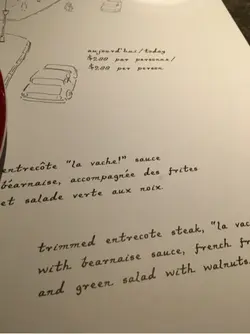 aujourd'hui/today
$2.00 par personne/
$2.00 per person
entrecôte "la vache!" sauce
béarnaise, accompagnée des frites
et salade verte aux noix.
trimmed entrecote steak, "la vac
with bearnaise sauce, french fr
and green salad with walnuts.